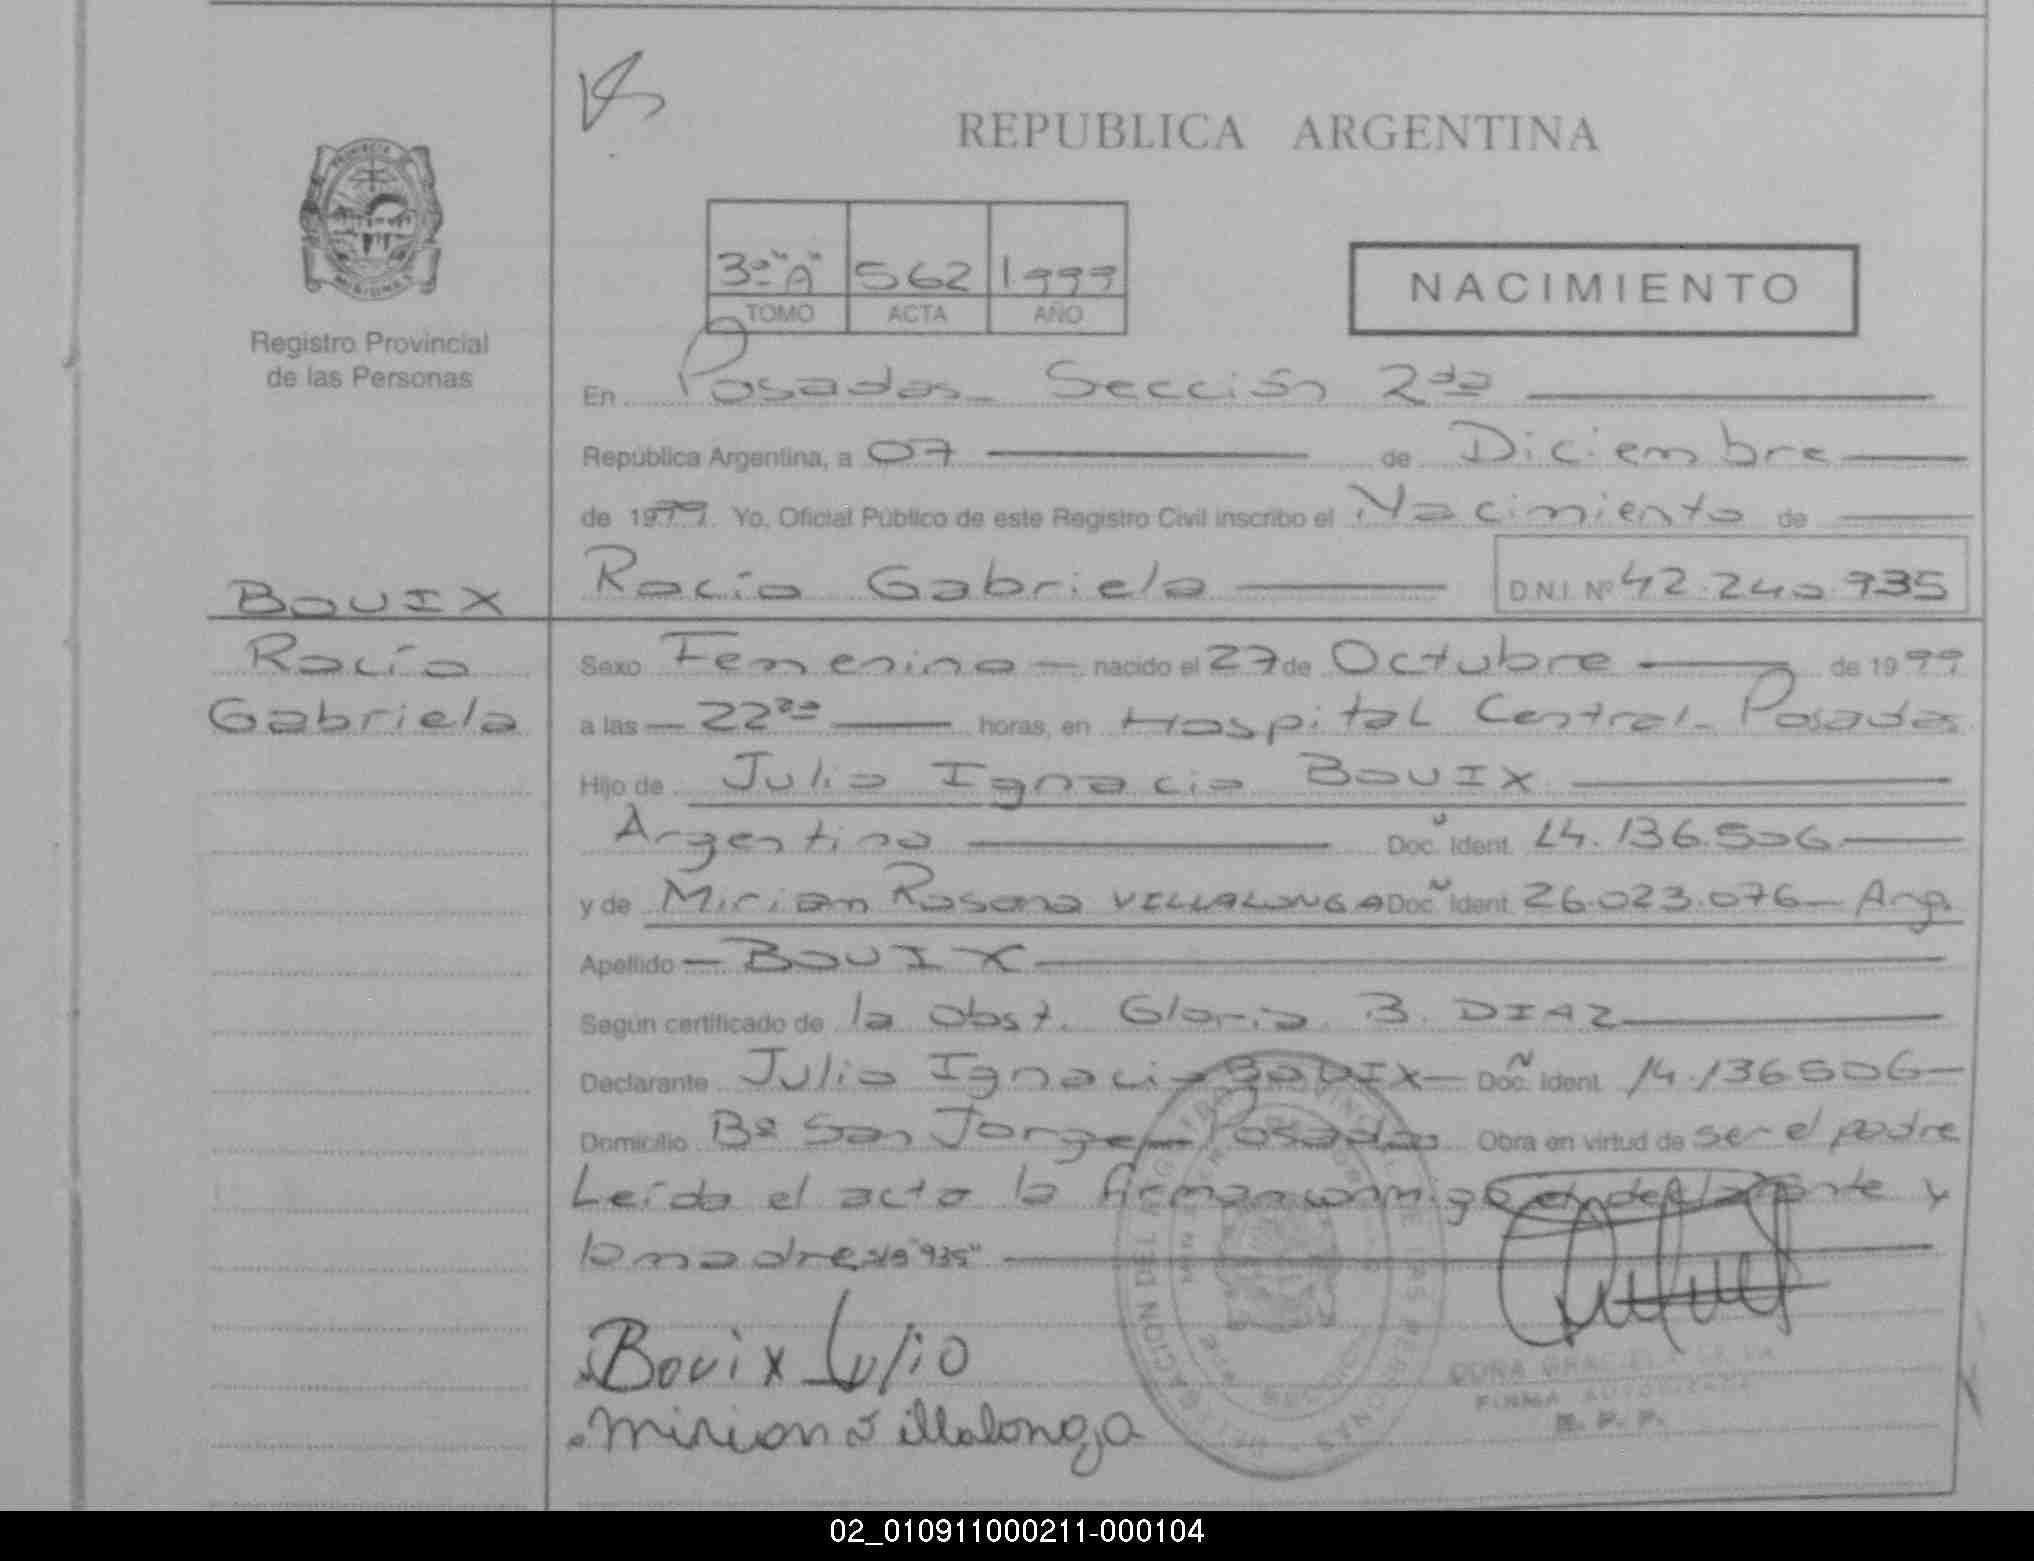 REPUBLICA ARGENTINA
3º "A" 562 1999
TOMO ACTA AÑO
NACIMIENTO
Registro Provincial
de las Personas
En Posadas - Sección 2da
República Argentina, a 07 de Diciembre
de 1999. Yo, Oficial Público de este Registro Civil inscribo el Nacimiento de
Rocío Gabriela D.N.I. Nº 42.240.935
BOUIX
Rocío
Gabriela
Sexo Femenino nacido el 27 de Octubre de 1999
a las 22 horas, en Hospital Central - Posadas
Hijo de Julio Ignacio BOUIX
Argentino Doc. Ident. 14.136.506
y de Miriam Rosana VILLALONGA Doc. Ident. 26.023.076 - Arg.
Apellido - BOUIX
Según certificado de la Obst. Gloria B. DIAZ
Declarante Julio Ignacio BOUIX - Doc. Ident. 14.136506
Domicilio Bº San Jorge - Posadas Obra en virtud de ser el padre
Leída el acta la firman conmigo el declarante y
la madre s/b "935"
Bouix Julio
Mirian Villalonga
FIRMA AUTORIZADA
R. P. P.
02_010911000211-000104